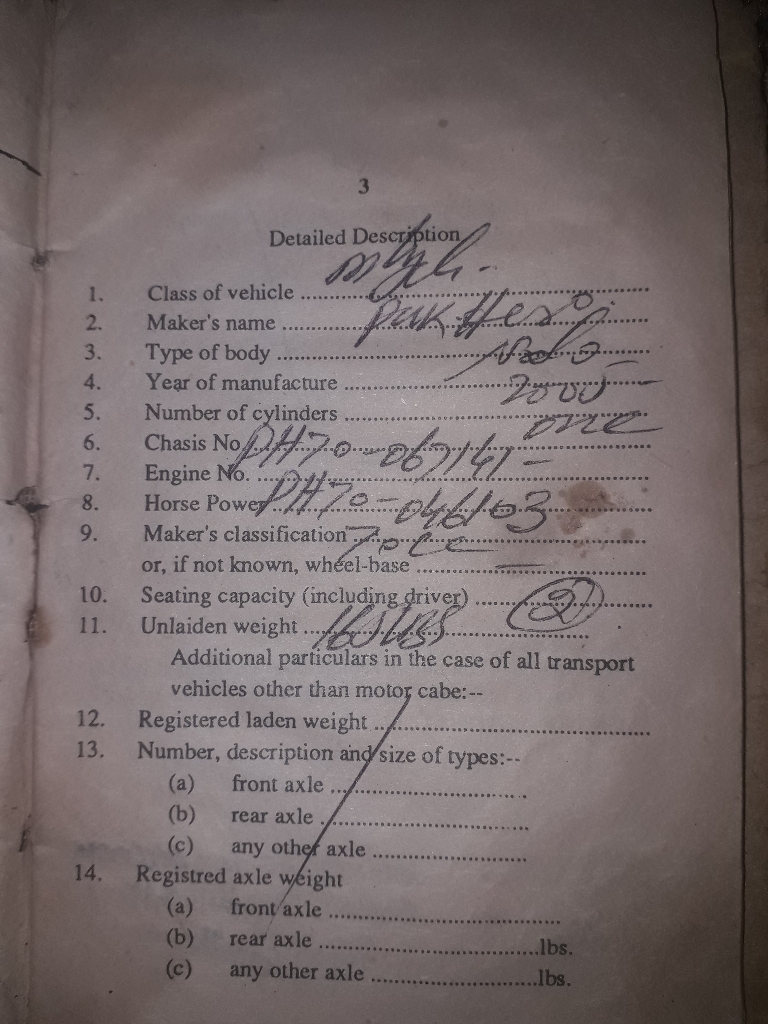 3
Detailed Description
1. Class of vehicle .......... m/cycle.
2. Maker's name .......... Pak Hero
3. Type of body .......... solo
4. Year of manufacture .......... 2005
5. Number of cylinders .......... one
6. Chasis No. PH70-067161-
7. Engine No. ..........
8. Horse Power PH70-046103
9. Maker's classification 70cc
or, if not known, wheel-base .......... —
10. Seating capacity (including driver) .......... 2
11. Unlaiden weight .......... 165 LBS
Additional particulars in the case of all transport
vehicles other than motor cabe:--
12. Registered laden weight ..........
13. Number, description and size of types:--
(a) front axle ..........
(b) rear axle ..........
(c) any other axle ..........
14. Registred axle weight
(a) front axle ..........
(b) rear axle ..........lbs.
(c) any other axle ..........lbs.